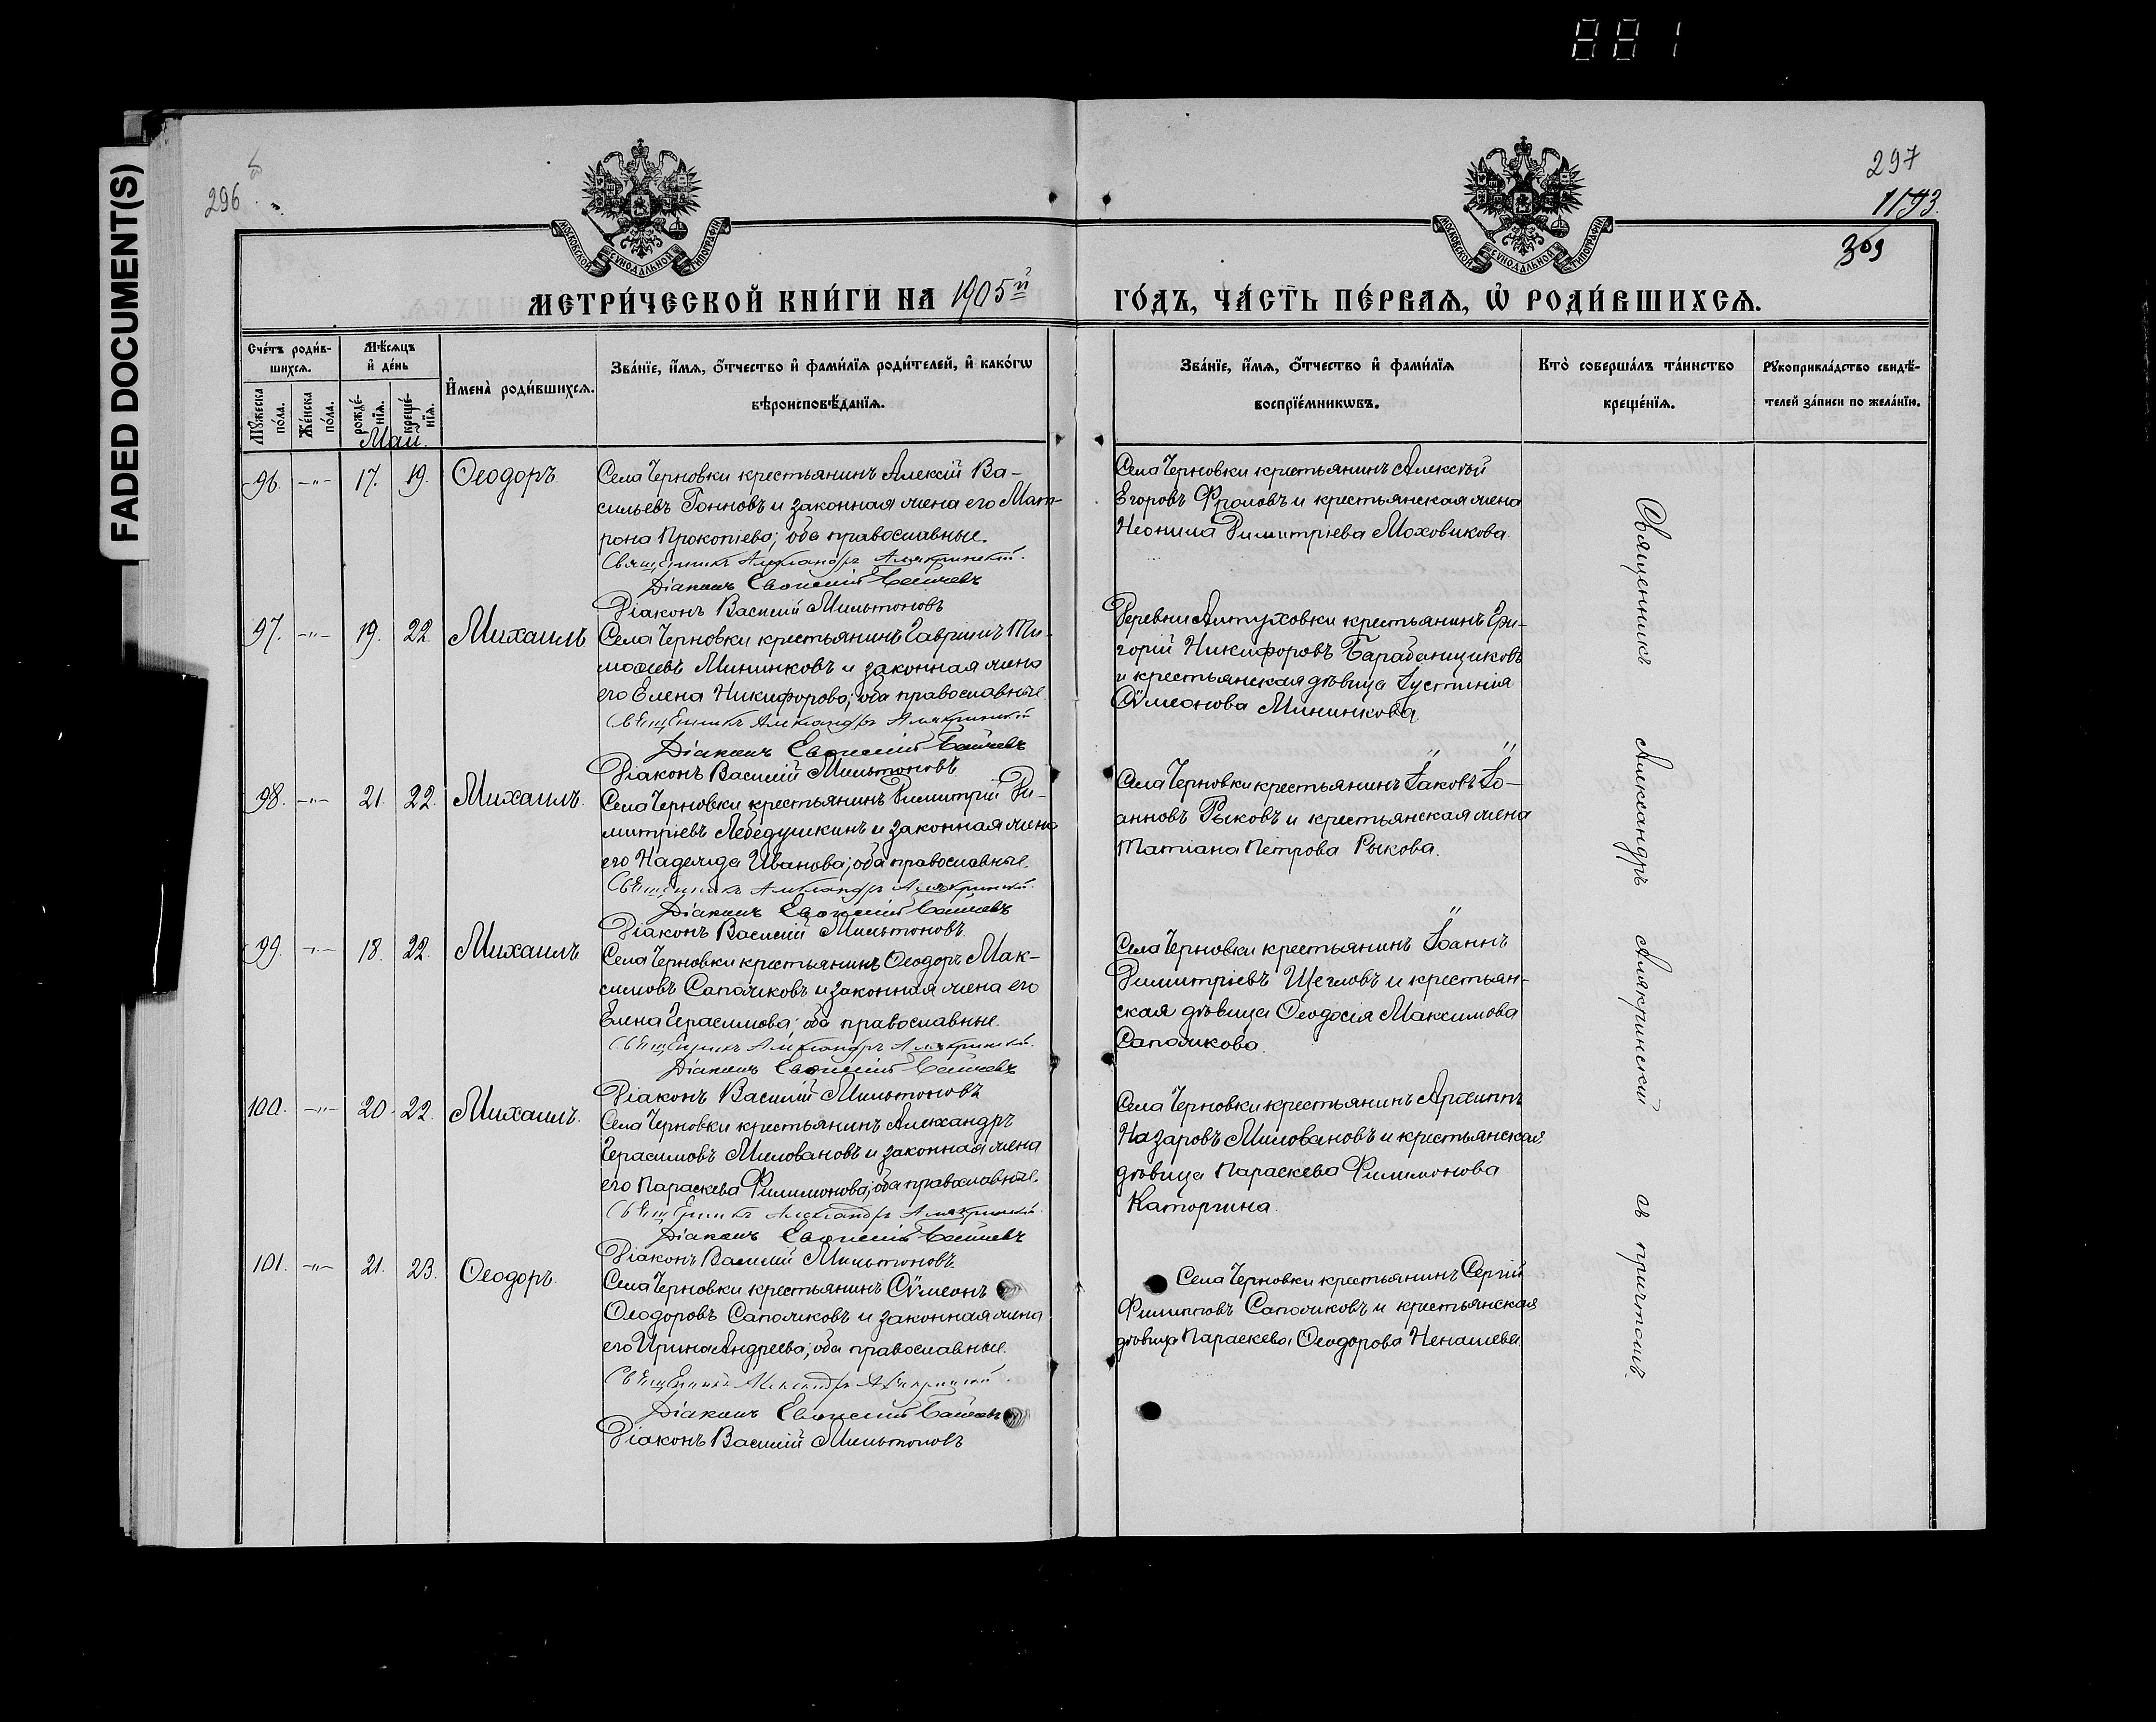 881
FADED DOCUMENT(S)
296
297
1193.
309
МОСКОВСКОЙ СѴНОДАЛЬНОЙ ТИПОГРАФІИ
МОСКОВСКОЙ СѴНОДАЛЬНОЙ ТИПОГРАФІИ
МЕТРИ́ЧЕСКОЙ КНИ́ГИ НА 1905й
ГО́ДЪ, ЧА́СТЬ ПЕ́РВАѦ, Ѡ҆ РОДИ́ВШИХСѦ.
Сче́тъ роди́вшихсѧ.
Мꙋ́жеска по́ла.
Же́нска по́ла.
Мѣ́сѧцъ и҆ де́нь
рожде́нїѧ.
креще́нїѧ.
И҆мена̀ роди́вшихсѧ.
Зва́нїе, и҆́мѧ, ѻ҆́тчество и҆ фами́лїѧ роди́телей, и҆ како́гѡ
вѣроисповѣ́данїѧ.
Зва́нїе, и҆́мѧ, ѻ҆́тчество и҆ фами́лїѧ
воспрїе́мникѡвъ.
Кто̀ соверша́лъ та́инство
креще́нїѧ.
Рꙋкоприкла́дство свидѣ́-
телей за́писи по жела́нїю.
Май.
96. -"- 17. 19. Ѳеодоръ.
Села Черновки крестьянинъ Алексій Ва-
сильевъ Гонновъ и законная жена его Мат-
рона Прокопіева; оба православные.
Священникъ Александръ Алякринскій.
Діаконъ Евѳимій
Діаконъ Василій Мильтоновъ
Села Черновки крестьянинъ Алексѣй
Егоровъ Фроловъ и крестьянская жена
Неонила Димитріева Моховикова.
97. -"- 19. 22. Михаилъ
Села Черновки крестьянинъ Гавріилъ Ти-
моѳеевъ Мининковъ и законная жена
его Елена Никифорова; оба православные
Священникъ Александръ Алякринскій
Діаконъ Евѳимій
Діаконъ Василій Мильтоновъ
Деревни Алтуховки крестьянинъ Гри-
горій Никифоровъ Барабанщиковъ
и крестьянская дѣвица Іустинія
Сѵмеонова Мининкова.
98. -"- 21. 22. Михаилъ.
Села Черновки крестьянинъ Димитрій Ди-
митріевъ Лебедушкинъ и законная жена
его Надежда Иванова; оба православные.
Священникъ Александръ Алякринскій.
Діаконъ Евѳимій
Діаконъ Василій Мильтоновъ.
Села Черновки крестьянинъ Іаковъ Іо-
анновъ Рыковъ и крестьянская жена
Татіана Петрова Рыкова.
99. -"- 18. 22. Михаилъ
Села Черновки крестьянинъ Ѳеодоръ Мак-
симовъ Сапожковъ и законная жена его
Елена Герасимова; оба православные.
Священникъ Александръ Алякринскій.
Діаконъ Евѳимій
Діаконъ Василій Мильтоновъ
Села Черновки крестьянинъ Іоаннъ
Димитріевъ Щегловъ и крестьян-
ская дѣвица Ѳеодосія Максимова
Сапожкова.
100. -"- 20. 22. Михаилъ.
Села Черновки крестьянинъ Александръ
Герасимовъ Миловановъ и законная жена
его Параскева Филимонова; оба православные.
Священникъ Александръ Алякринскій
Діаконъ Евѳимій
Діаконъ Василій Мильтоновъ.
Села Черновки крестьянинъ Архиппъ
Назаровъ Миловановъ и крестьянская
дѣвица Параскева Филимонова
Каторгина.
101. -"- 21. 23. Ѳеодоръ.
Села Черновки крестьянинъ Сѵмеонъ
Ѳеодоровъ Сапожковъ и законная жена
его Ирина Андреева; оба православные.
Священникъ Александръ Алякринскій.
Діаконъ Евѳимій
Діаконъ Василій Мильтоновъ
Села Черновки крестьянинъ Сергій
Филипповъ Сапожковъ и крестьянская
дѣвица Параскева Ѳеодорова Ненашева.
Священникъ Александръ Алякринскій съ причтомъ.